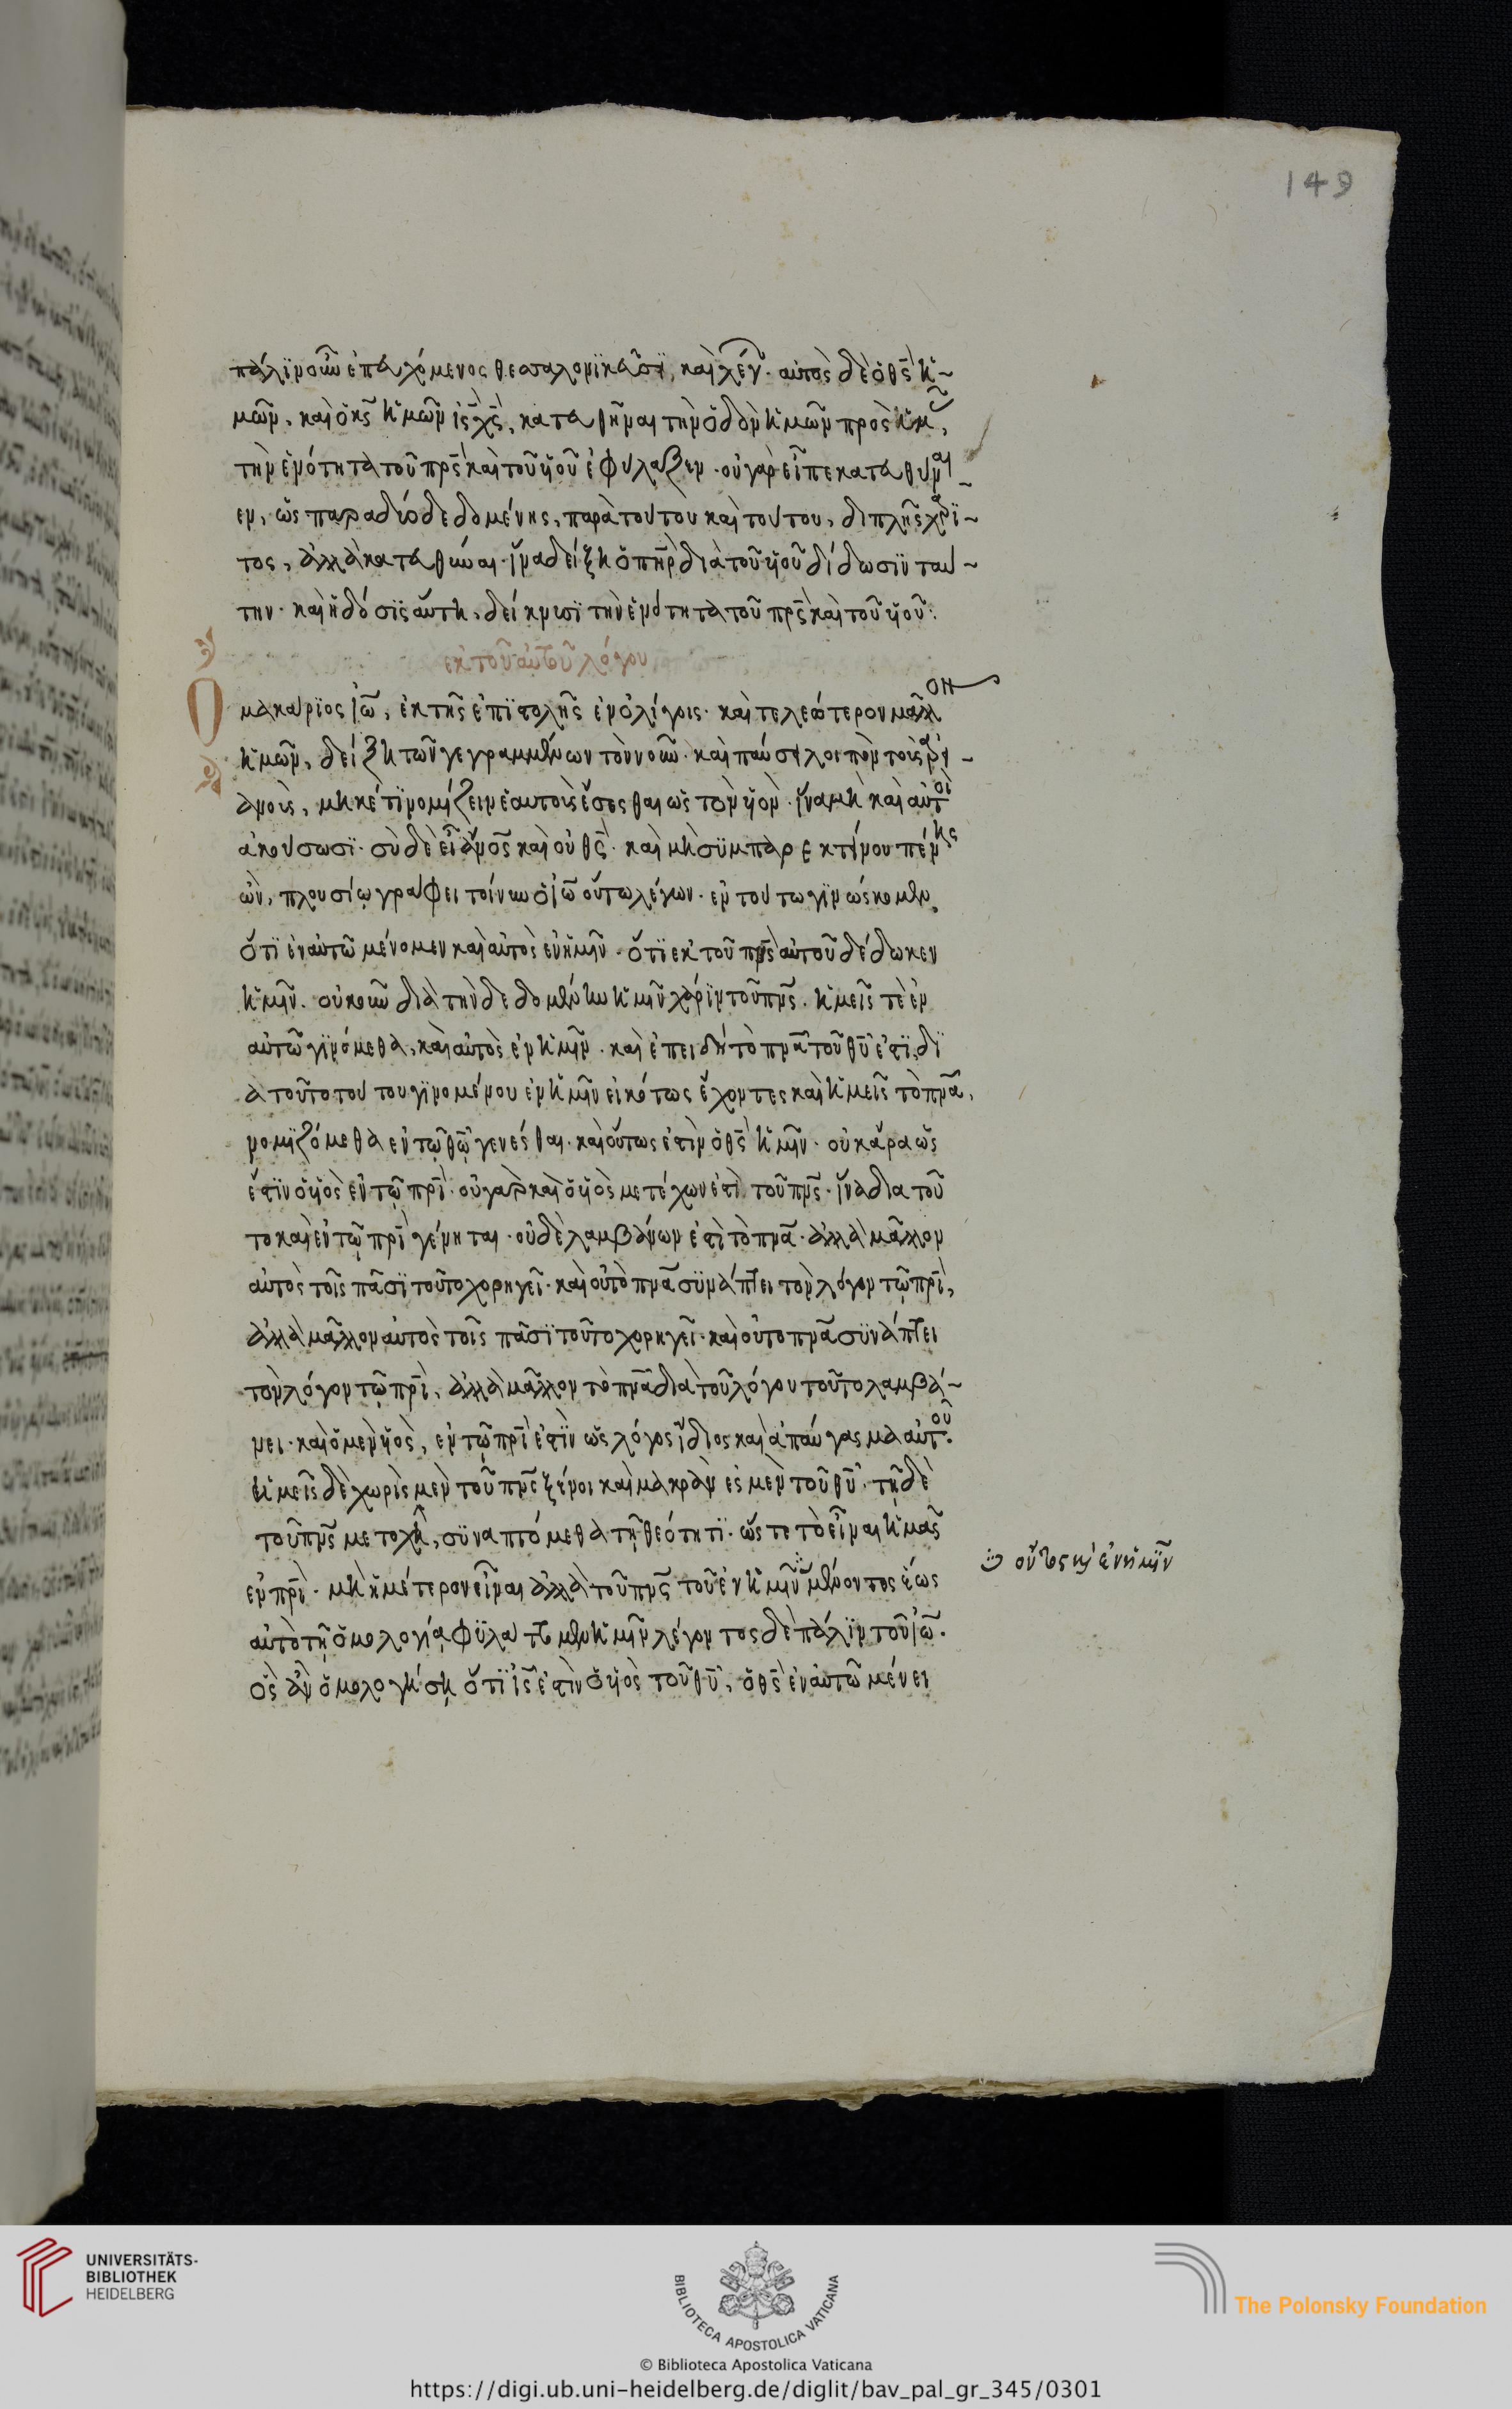 149
πάλιν οὖν ἐπευχόμενος θεσσαλονικεῦσι, καὶ λέγων· αὐτὸς δὲ ὁ θς̄ ἡ-
μῶν, καὶ ὁ κς̄ ἡμῶν ις̄ χς̄, κατευθῦναι τὴν ὁδὸν ἡμῶν πρὸς ἡμᾶς,
τὴν ἑνότητα τοῦ πρς̄ καὶ τοῦ υἱοῦ ἐφύλαξεν· οὐ γὰρ εἶπε κατευθύναι-
εν, ὡς παρὰ δύο δεδομένης, παρὰ τούτου καὶ τούτου, διπλῆς χάρι-
τος, ἀλλὰ κατευθύναι· ἵνα δείξη ὁ πηρ̄ διὰ τοῦ υἱοῦ δίδωσιν ταύ-
την· καὶ ἡ δόσις αὕτη, δείκνυσι τὴν ἑνότητα τοῦ πρς̄ καὶ τοῦ υἱοῦ:
ἐκ τοῦ αὐτοῦ λόγου
Ο μακάριος ἰω̄, ἐκ τῆς ἐπιστολῆς ἐν ὀλίγοις· καὶ τελεώτερον μᾶλλον
ἡμῶν, δείξη τῶν γεγραμμένων τὸν νοῦν· καὶ παύσει λοιπὸν τοὺς ἀρει-
ανοὺς, μηκέτι νομίζειν ἑαυτοὺς ἔσεσθαι ὡς τὸν υἱόν· ἵνα μὴ καὶ αὐτοὶ
ἀκούσωσι· σὺ δὲ εἶ ἄνος̄ καὶ οὐ θς̄· καὶ μὴ συμπαρεκτείνου πένης
ὢν, πλουσίῳ γράφει τοίνυν ὁ ἰω̄ οὕτω λέγων· ἐν τούτω γινώσκομεν
ὅτι ἐν αὐτῶ μένομεν καὶ αὐτὸς ἐν ἡμῖν· ὅτι ἐκ τοῦ πνς̄ αὐτοῦ δέδωκεν
ἡμῖν. οὐκοῦν διὰ τὴν δεδομένην ἡμῖν χάριν τοῦ πνς̄· ἡμεῖς τὲ ἐν
αὐτῶ γινόμεθα, καὶ αὐτὸς ἐν ἡμῖν· καὶ ἐπειδὴ τὸ πνᾱ τοῦ θῡ ἐστι, δι
ὰ τοῦτο τούτου γινομένου ἐν ἡμῖν εἰκότως ἔχοντες καὶ ἡμεῖς τὸ πνᾱ,
νομιζόμεθα ἐν τῷ θῷ γενέσθαι· καὶ οὕτως ἐστὶν ὁ θς̄ ἡμῖν· οὐκ ἄρα ὡς
ἔστιν ὁ υἱὸς ἐν τῷ πρῑ· οὐ γὰρ καὶ ὁ υἱὸς μετέχων ἐστὶ τοῦ πνς̄· ἵνα δια τοῦ
το καὶ ἐν τῷ πρῑ γένηται· οὐδὲ λαμβάνων ἐστὶ τὸ πνᾱ· ἀλλὰ μᾶλλον
αὐτὸς τοῖς πᾶσι τοῦτο χορηγεῖ· καὶ οὐ τὸ πνᾱ συνάπτει τὸν λόγον τῷ πρῑ,
ἀλλὰ μᾶλλον αὐτὸς τοῖς πᾶσι τοῦτο χορηγεῖ· καὶ οὐ το πνᾱ συνάπτει
τὸν λόγον τῷ πρῑ, ἀλλὰ μᾶλλον τὸ πνᾱ διὰ τοῦ λόγου τοῦτο λαμβά-
νει· καὶ ὁ μεν υἱὸς, ἐν τῷ πρῑ ἐστὶν ὡς λόγος ἴδιος καὶ ἀπαύγασμα αὐτοῦ.
ἡμεῖς δὲ χωρὶς μὲν τοῦ πνς̄ ξένοι καὶ μακράν ἐσμὲν τοῦ θῡ· τῇ δὲ
τοῦ πνς̄ μετοχῇ, συναπτόμεθα τῇ θεότητι· ὥστε τὸ εἶναι ἡμᾶς
ἐν πρῑ· μὴ ἡμέτερον εἶναι ἀλλὰ τοῦ πνς̄ τοῦ ἐν ἡμῖν μένοντος ἕως
οὖτος καὶ ἐν ἡμῖν
αὐτὸ τῇ ὁμολογίᾳ φυλάττομεν ἡμῖν λέγοντος δὲ πάλιν τοῦ ἰω̄.
ὃς ἂν ὁμολογήσῃ ὅτι ις̄ ἐστὶν ὁ υἱὸς τοῦ θῡ, ὁ θς̄ ἐν αὐτῶ μένει
UNIVERSITÄTS-
BIBLIOTHEK
HEIDELBERG
BIBLIOTECA APOSTOLICA VATICANA
The Polonsky Foundation
© Biblioteca Apostolica Vaticana
https://digi.ub.uni-heidelberg.de/diglit/bav_pal_gr_345/0301